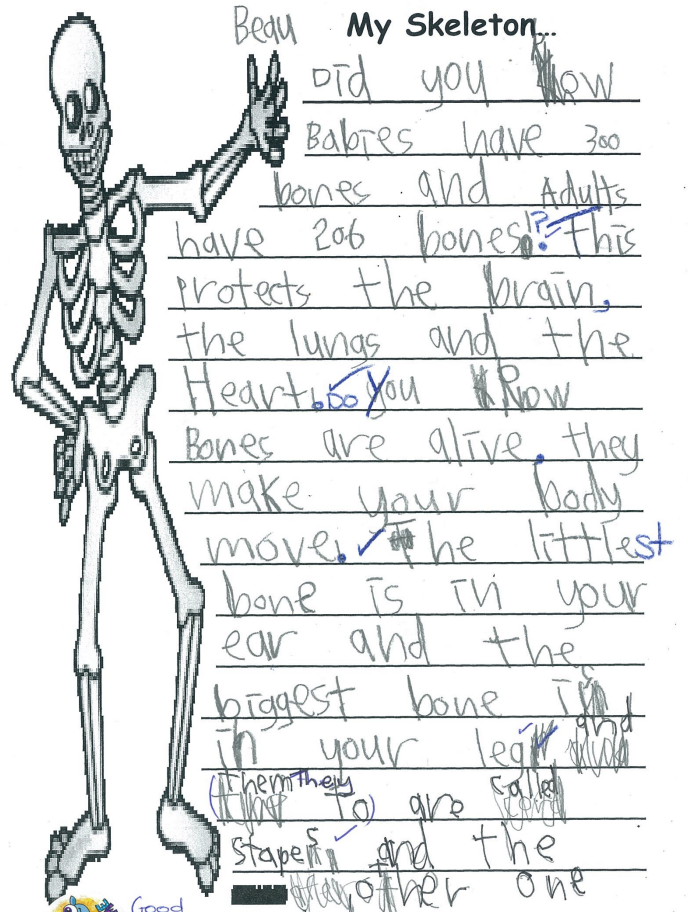 Beau My Skeleton...
Did you know
Babies have 300
bones and Adults
have 206 bones!? this
protects the brain,
the lungs and the
Heart. Do you know
Bones are alive. they
make your body
move. The littlest
bone is in your
ear and the
biggest bone is
in your leg and
(Them They to) are called
stapes and the
other one
Good